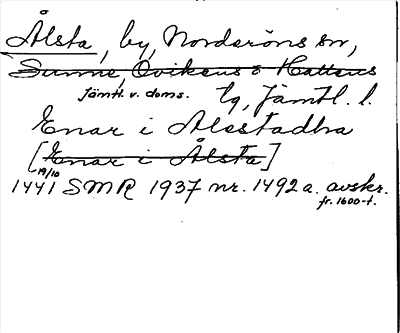 Ålsta, by, Norderöns sn,
Sunne, Ovikens o Hallens
Jämtl. v. doms. tg, Jämtl. l.
Enar i Alsstadha
[Enar i Ålsta]
19/10
1441 SMR 1937 nr. 1492 a. avskr.
fr. 1600-t.